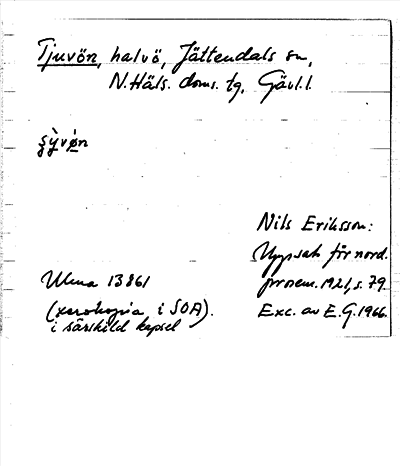 Tjuvön, halvö, Jättendals sn,
N.Häls. doms. tg, Gävl.l.
Nils Eriksson:
Uppsats för nord.
prosem. 1921, s. 79.
Ulma 13861
(xerokopia i SOA).
i särskild kapsel
Exc. av E.G. 1966.